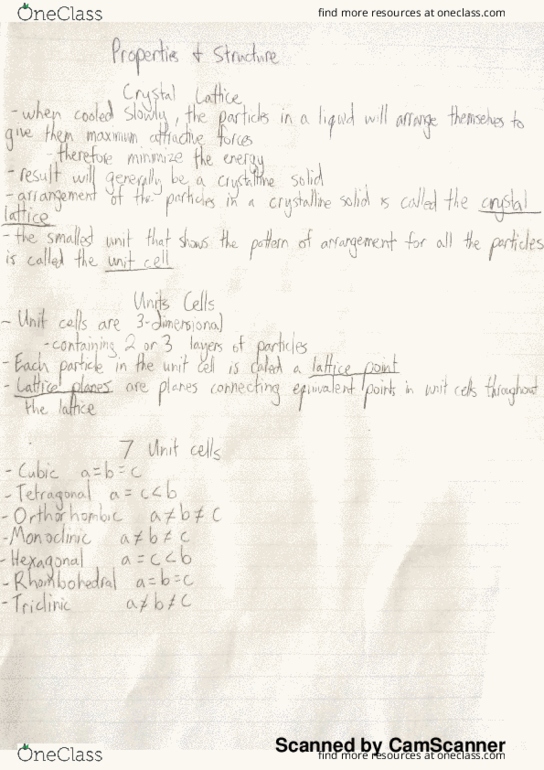 OneClass
find more resources at oneclass.com
Properties & Structure
Crystal Lattice
- when cooled slowly, the particles in a liquid will arrange themselves to
give them maximum attractive forces
- therefore minimize the energy
- result will generally be a crystalline solid
- arrangement of the particles in a crystalline solid is called the crystal
lattice
- the smallest unit that shows the pattern of arrangement for all the particles
is called the unit cell
Units Cells
- Unit cells are 3-dimensional
- containing 2 or 3 layers of particles
- Each particle in the unit cell is called a lattice point
- Lattice planes are planes connecting equivalent points in unit cells throughout
the lattice
7 Unit cells
- Cubic a=b=c
- Tetragonal a=c<b
- Orthorhombic a≠b≠c
- Monoclinic a≠b≠c
- Hexagonal a=c<b
- Rhombohedral a=b=c
- Triclinic a≠b≠c
Scanned by CamScanner
OneClass
find more resources at oneclass.com